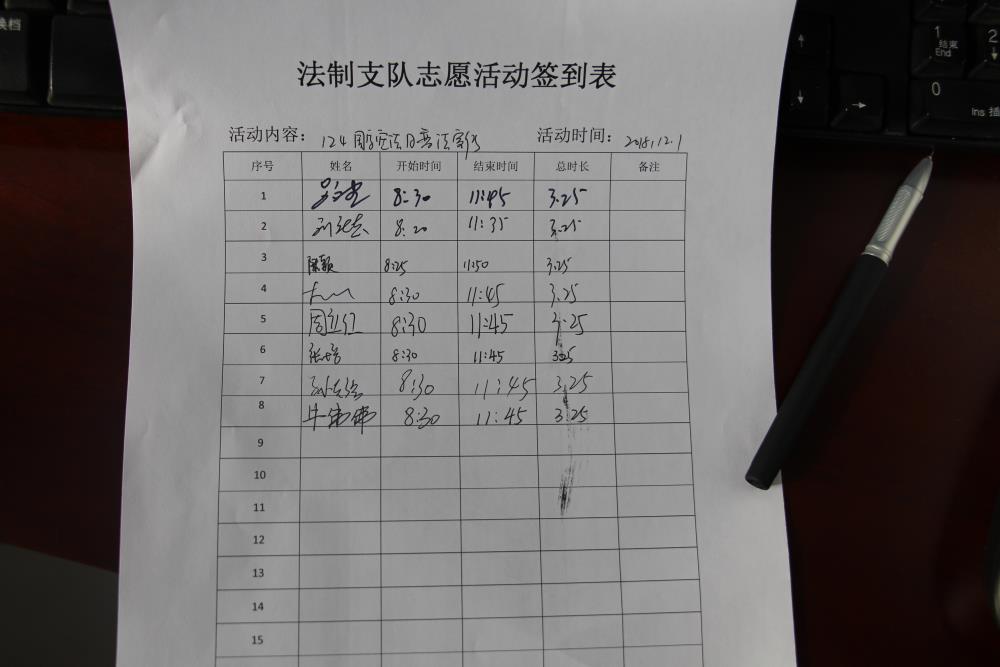 换档
1
结束
End
2
0
Ins 插
法制支队志愿活动签到表
活动内容： 124 国家宪法日普法宣传 活动时间： 2018.12.1
序号 姓名 开始时间 结束时间 总时长 备注
1 8:30 11:45 3.25
2 8:20 11:35 3.25
3 陈颖 8:25 11:50 3.25
4 8:30 11:45 3.25
5 周红红 8:30 11:45 3.25
6 张 8:30 11:45 3.25
7 孙 8:30 11:45 3.25
8 牛 8:30 11:45 3.25
9
10
11
12
13
14
15